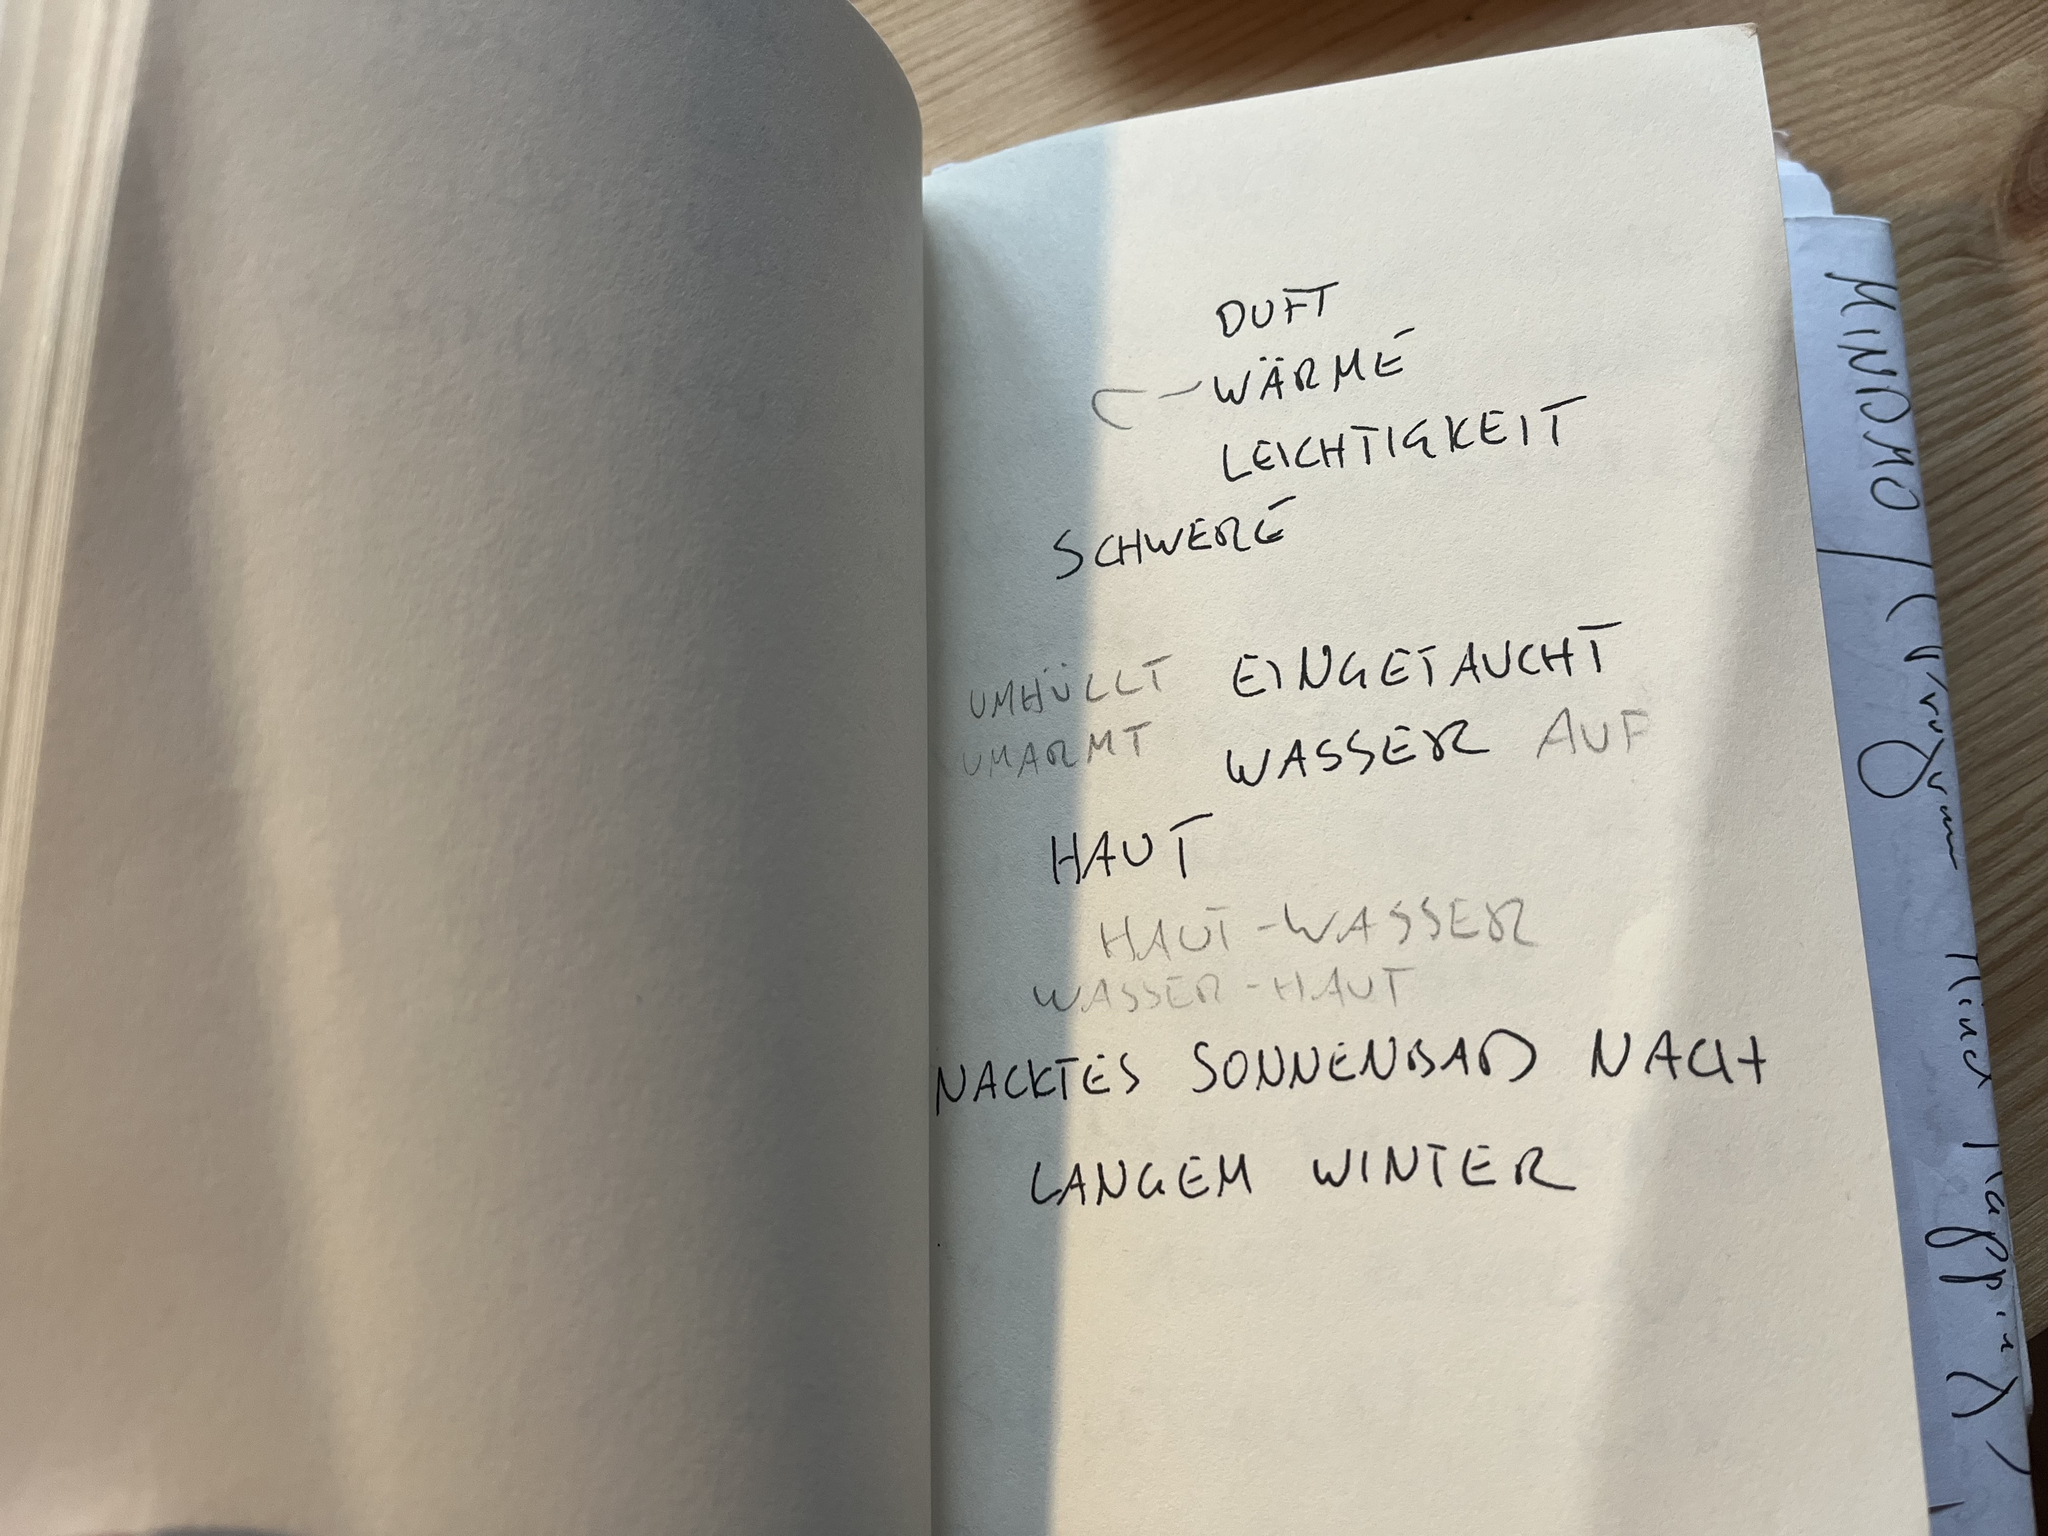 DUFT
WÄRME
LEICHTIGKEIT
SCHWERE
UMHÜLLT EINGETAUCHT
UMARMT WASSER AUF
HAUT
HAUT-WASSER
WASSER-HAUT
NACKTES SONNENBAD NACH
LANGEM WINTER
MINDMO
Mind Mapping